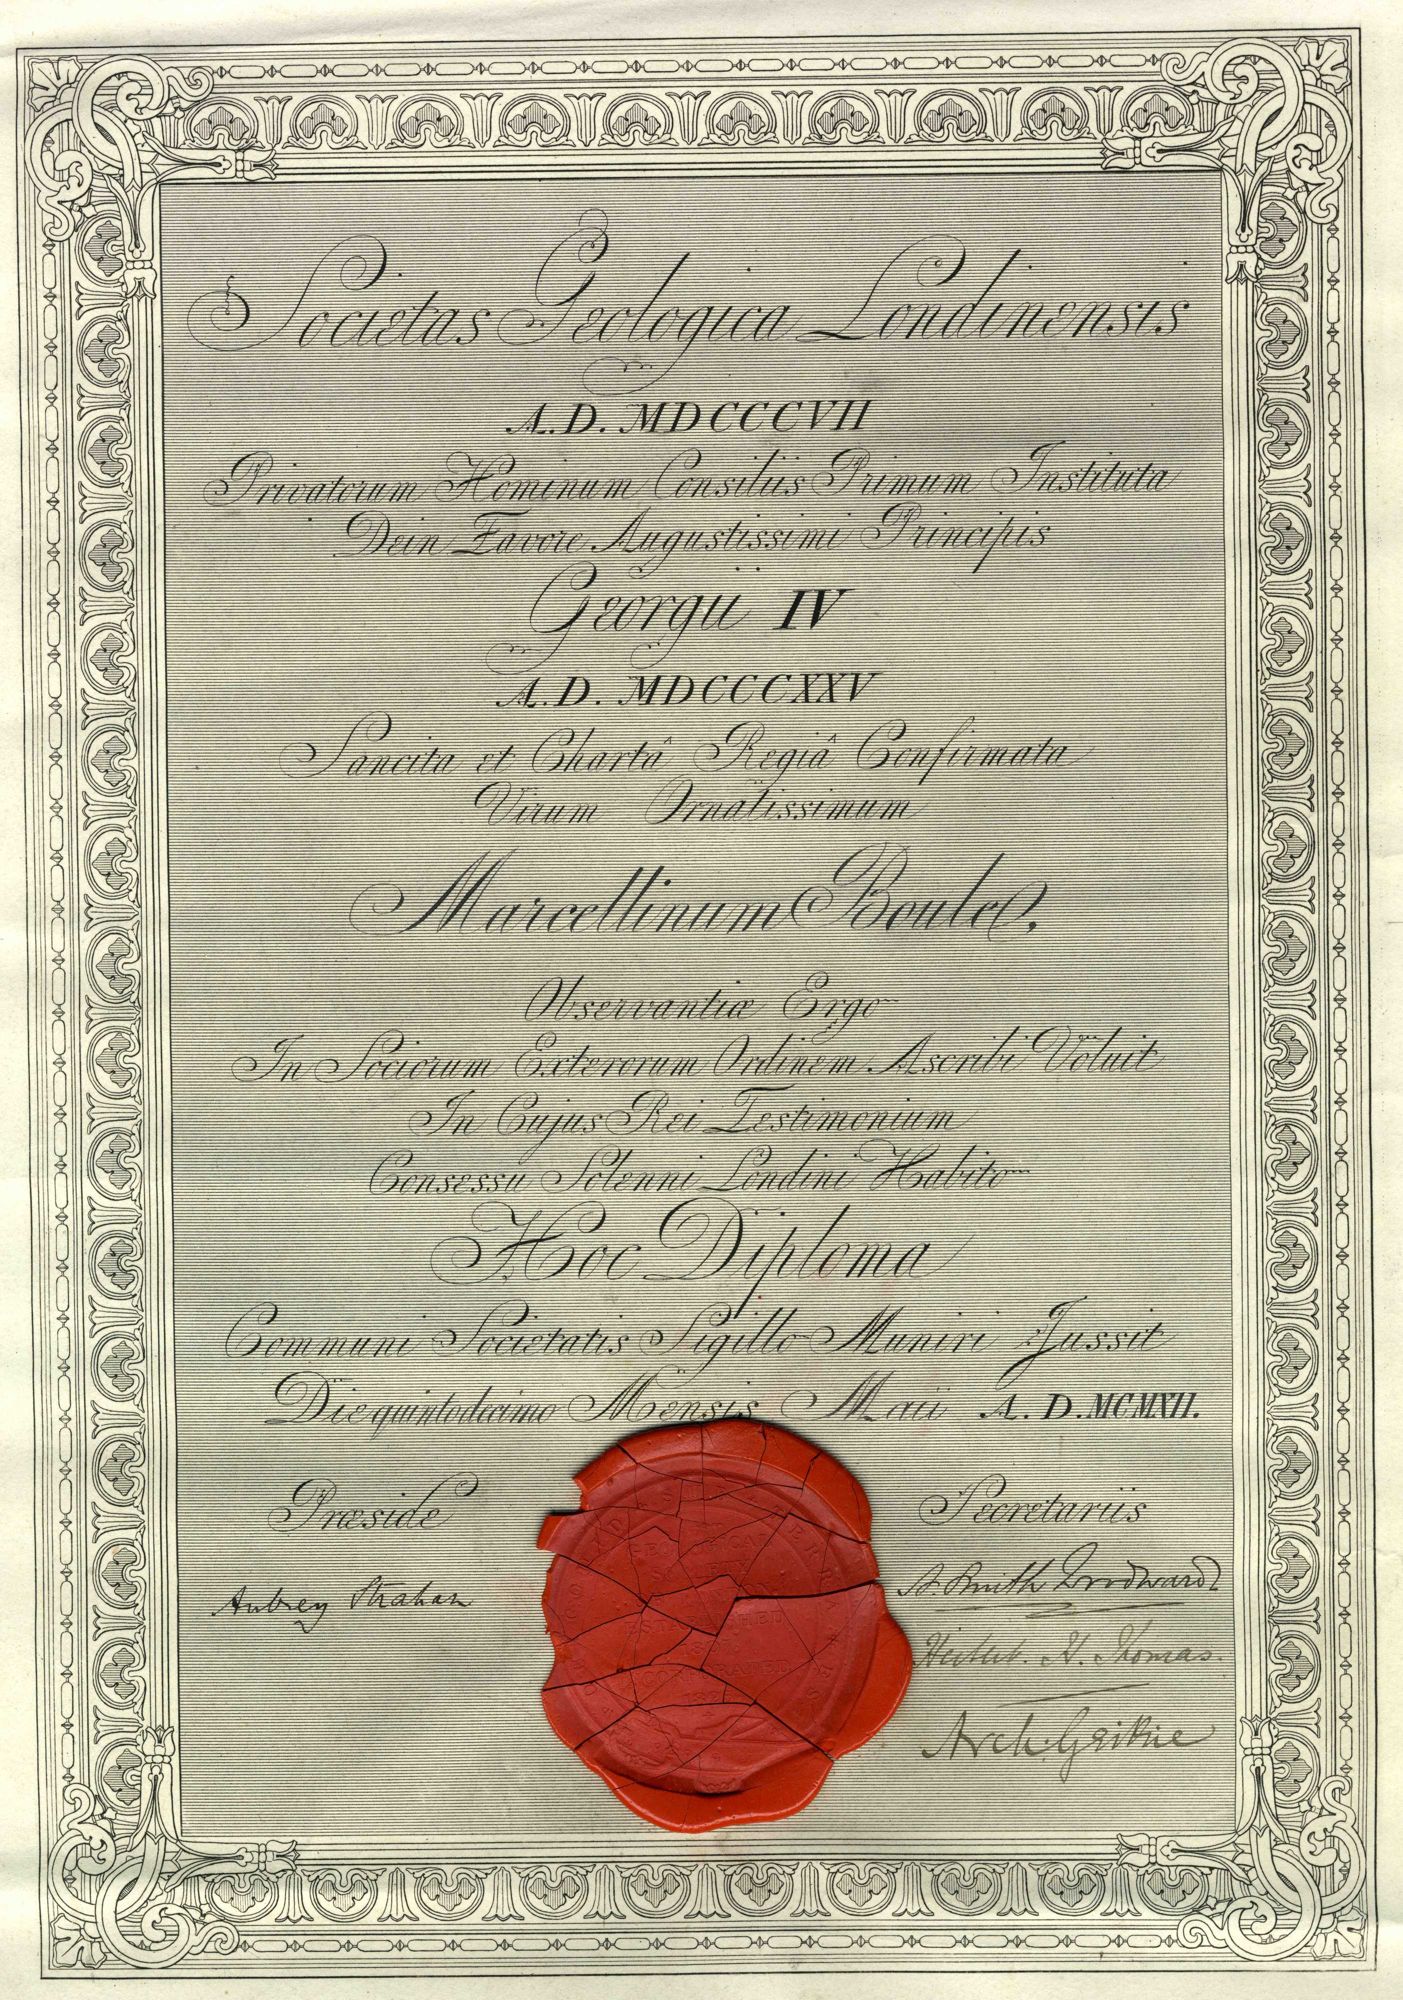 Societas Geologica Londinensis
A.D. MDCCCVII
Privatorum Hominum Consiliis Primum Instituta
Dein Favore Augustissimi Principis
Georgii IV
A.D. MDCCCXXV
Sancita et Chartâ Regiâ Confirmata
Virum Ornatissimum
Marcellinum Boule,
Observantiæ Ergo
In Sociorum Exterorum Ordinem Ascribi Voluit
In Cujus Rei Testimonium
Consessu Solenni Londini Habito
Hoc Diploma
Communi Societatis Sigillo Muniri Jussit
Die quintodecimo Mensis Maii A. D. MCMXII.
Præside
Aubrey Strahan
Secretariis
A. Smith Woodward
Herbert. H. Thomas.
Arch. Geikie
GEOLOGICAL
SOCIETY
ESTABLISHED